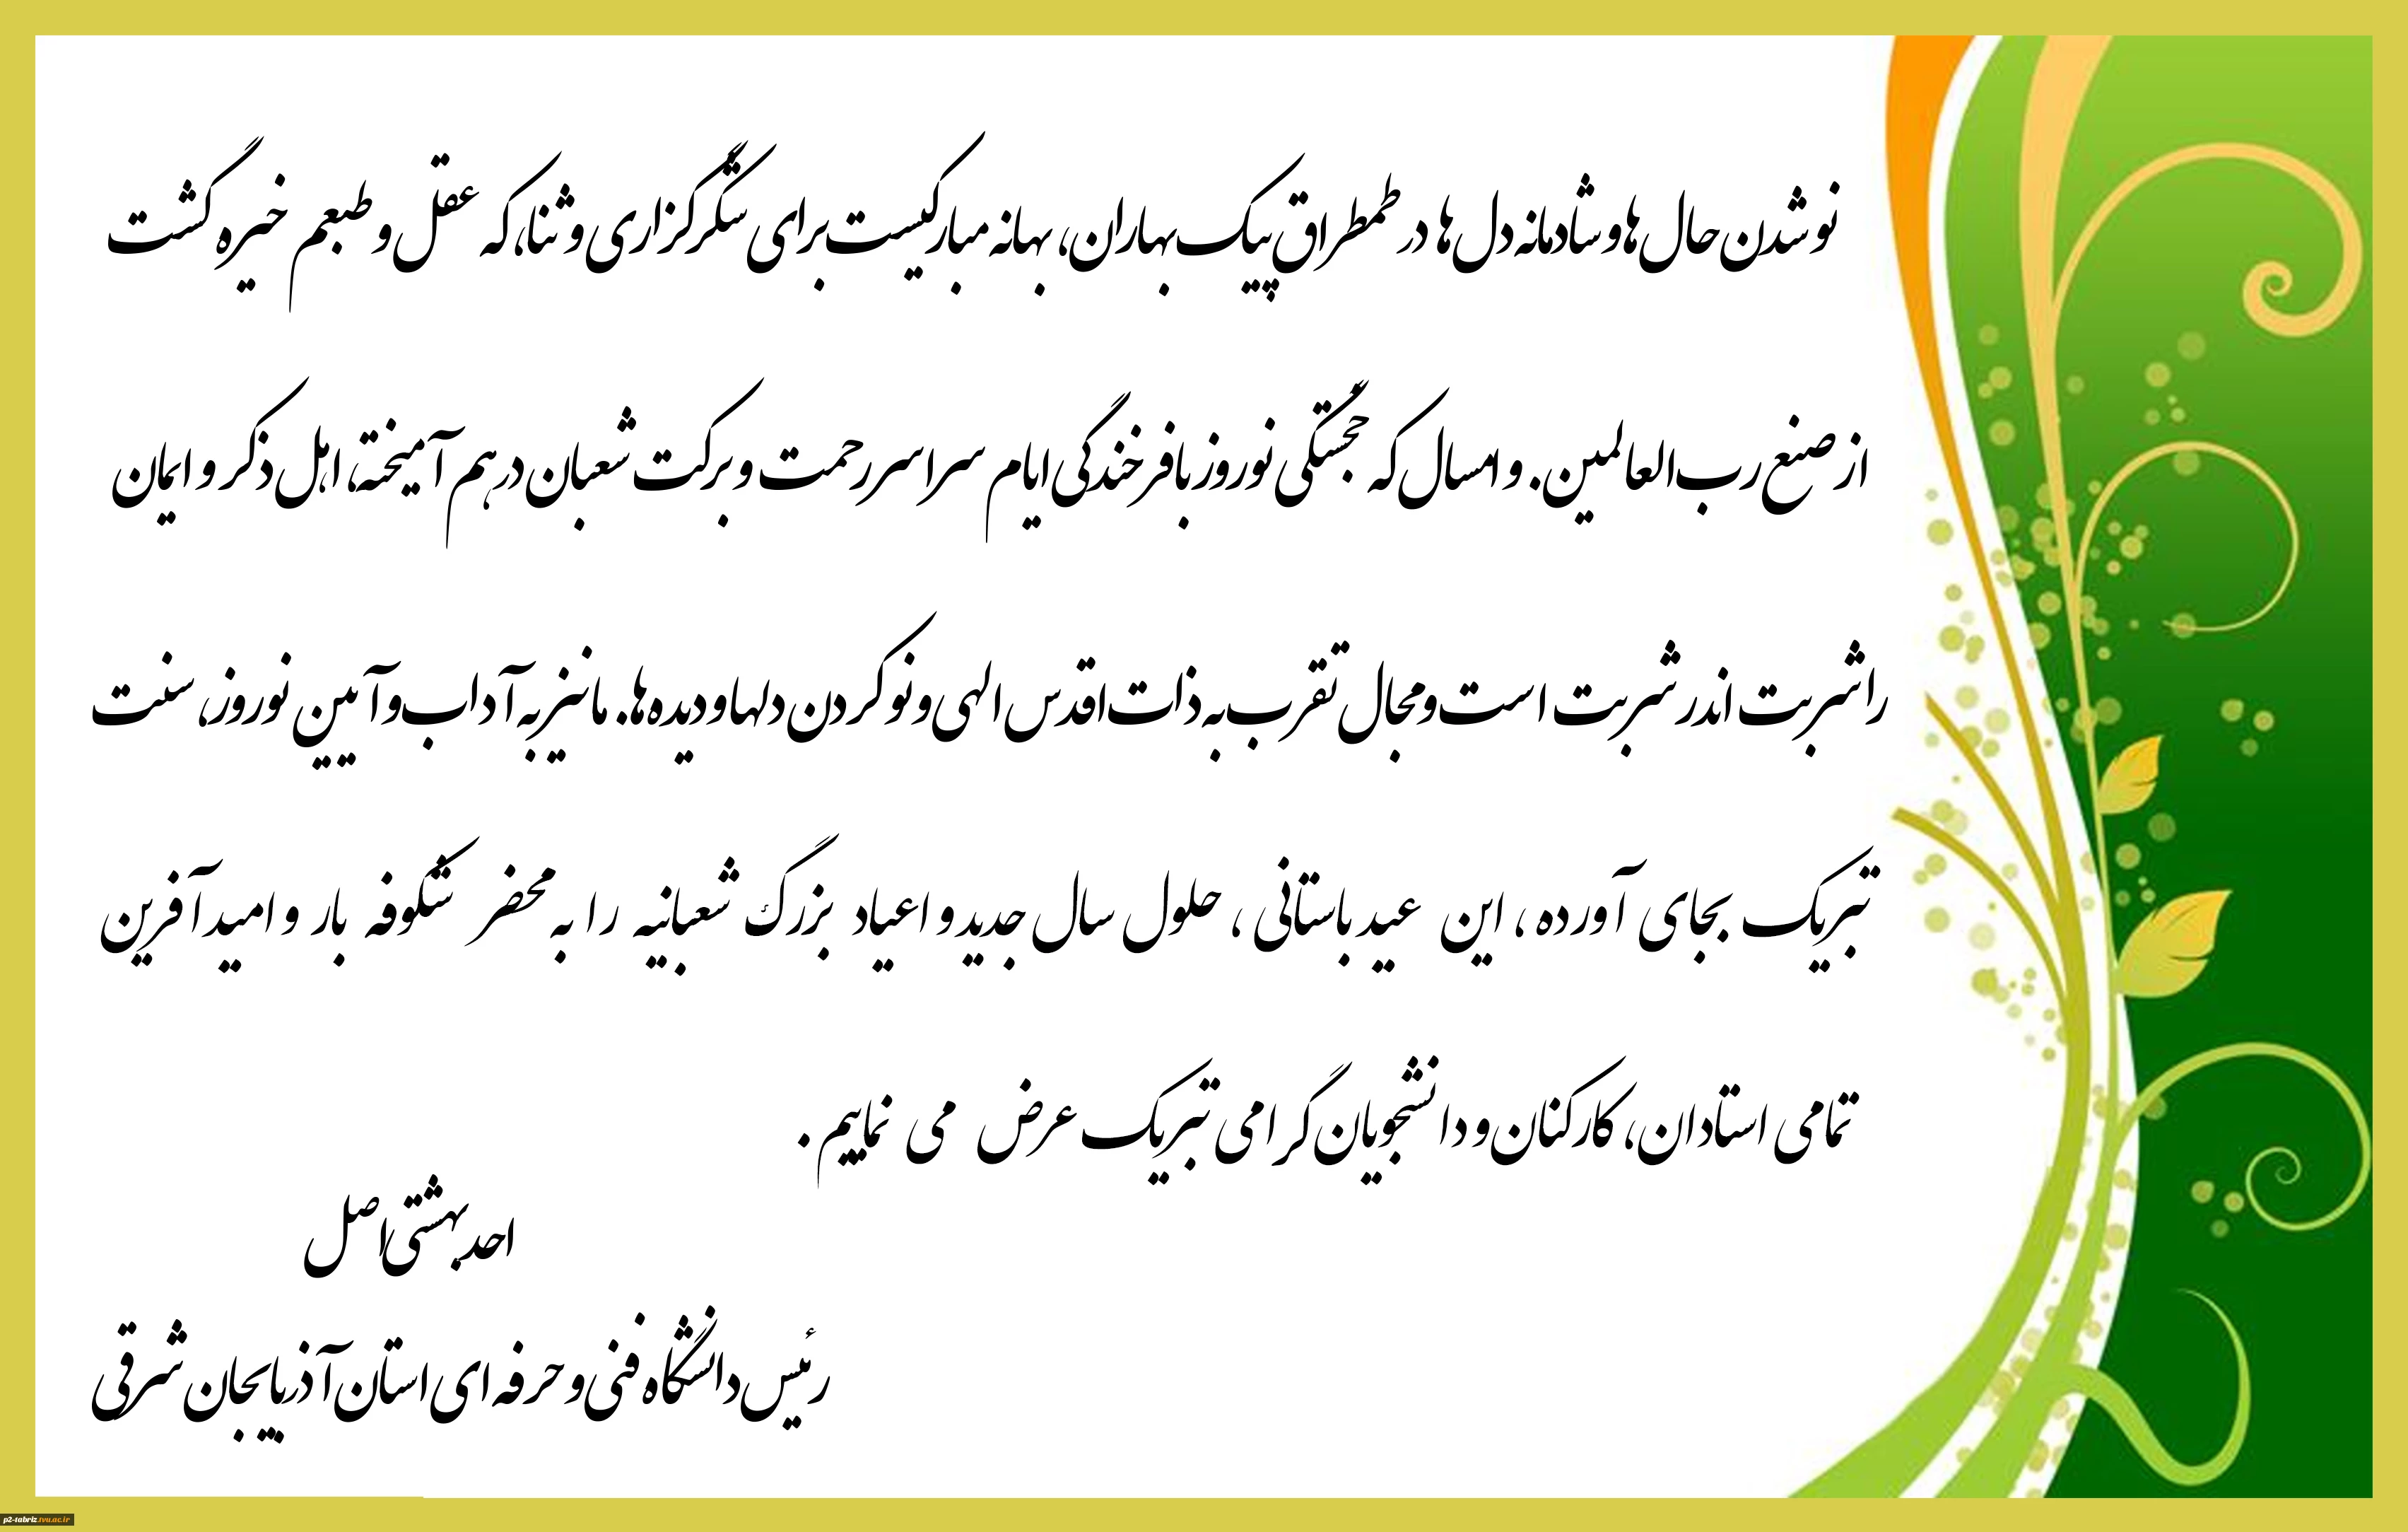 نو شدن حال ها و شادمانه دل ها در طمطراق پیک بهاران، بهانه مبارکیست برای شکرگزاری و ثنا، که عقل و طبعم خیره گشت
از صنع رب العالمین. و امسال که خجستگی نوروز با فرخندگی ایام سراسر رحمت و برکت شعبان در هم آمیخته، اهل ذکر و ایمان
را شربت اندر شربت است و مجال تقرب به ذات اقدس الهی و نو کردن دلها و دیده ها. ما نیز به آداب و آیین نوروز، سنت
تبریک بجای آورده ، این عید باستانی ، حلول سال جدید و اعیاد بزرگ شعبانیه را به محضر شکوفه بار و امید آفرین
تمامی استادان، کارکنان و دانشجویان گرامی تبریک عرض می نماییم .
احد بهشتی اصل
رئیس دانشگاه فنی و حرفه ای استان آذربایجان شرقی
p2-tabriz.tvu.ac.ir